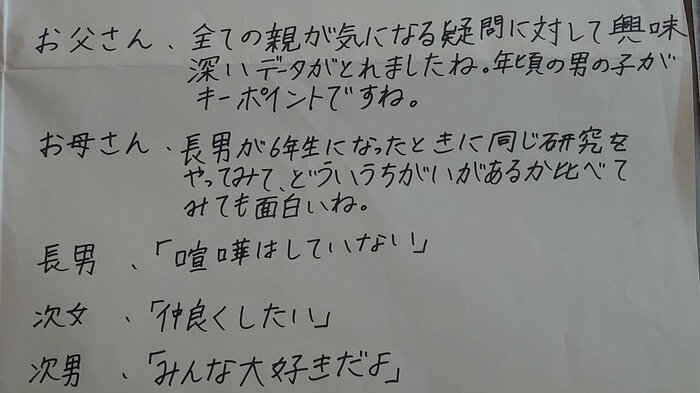 お父さん、全ての親が気になる疑問に対して興味
深いデータがとれましたね。年頃の男の子が
キーポイントですね。
お母さん、長男が6年生になったときに同じ研究を
やってみて、どういうちがいがあるか比べて
みても面白いね。
長男、「喧嘩はしていない」
次女、「仲良くしたい」
次男、「みんな大好きだよ」